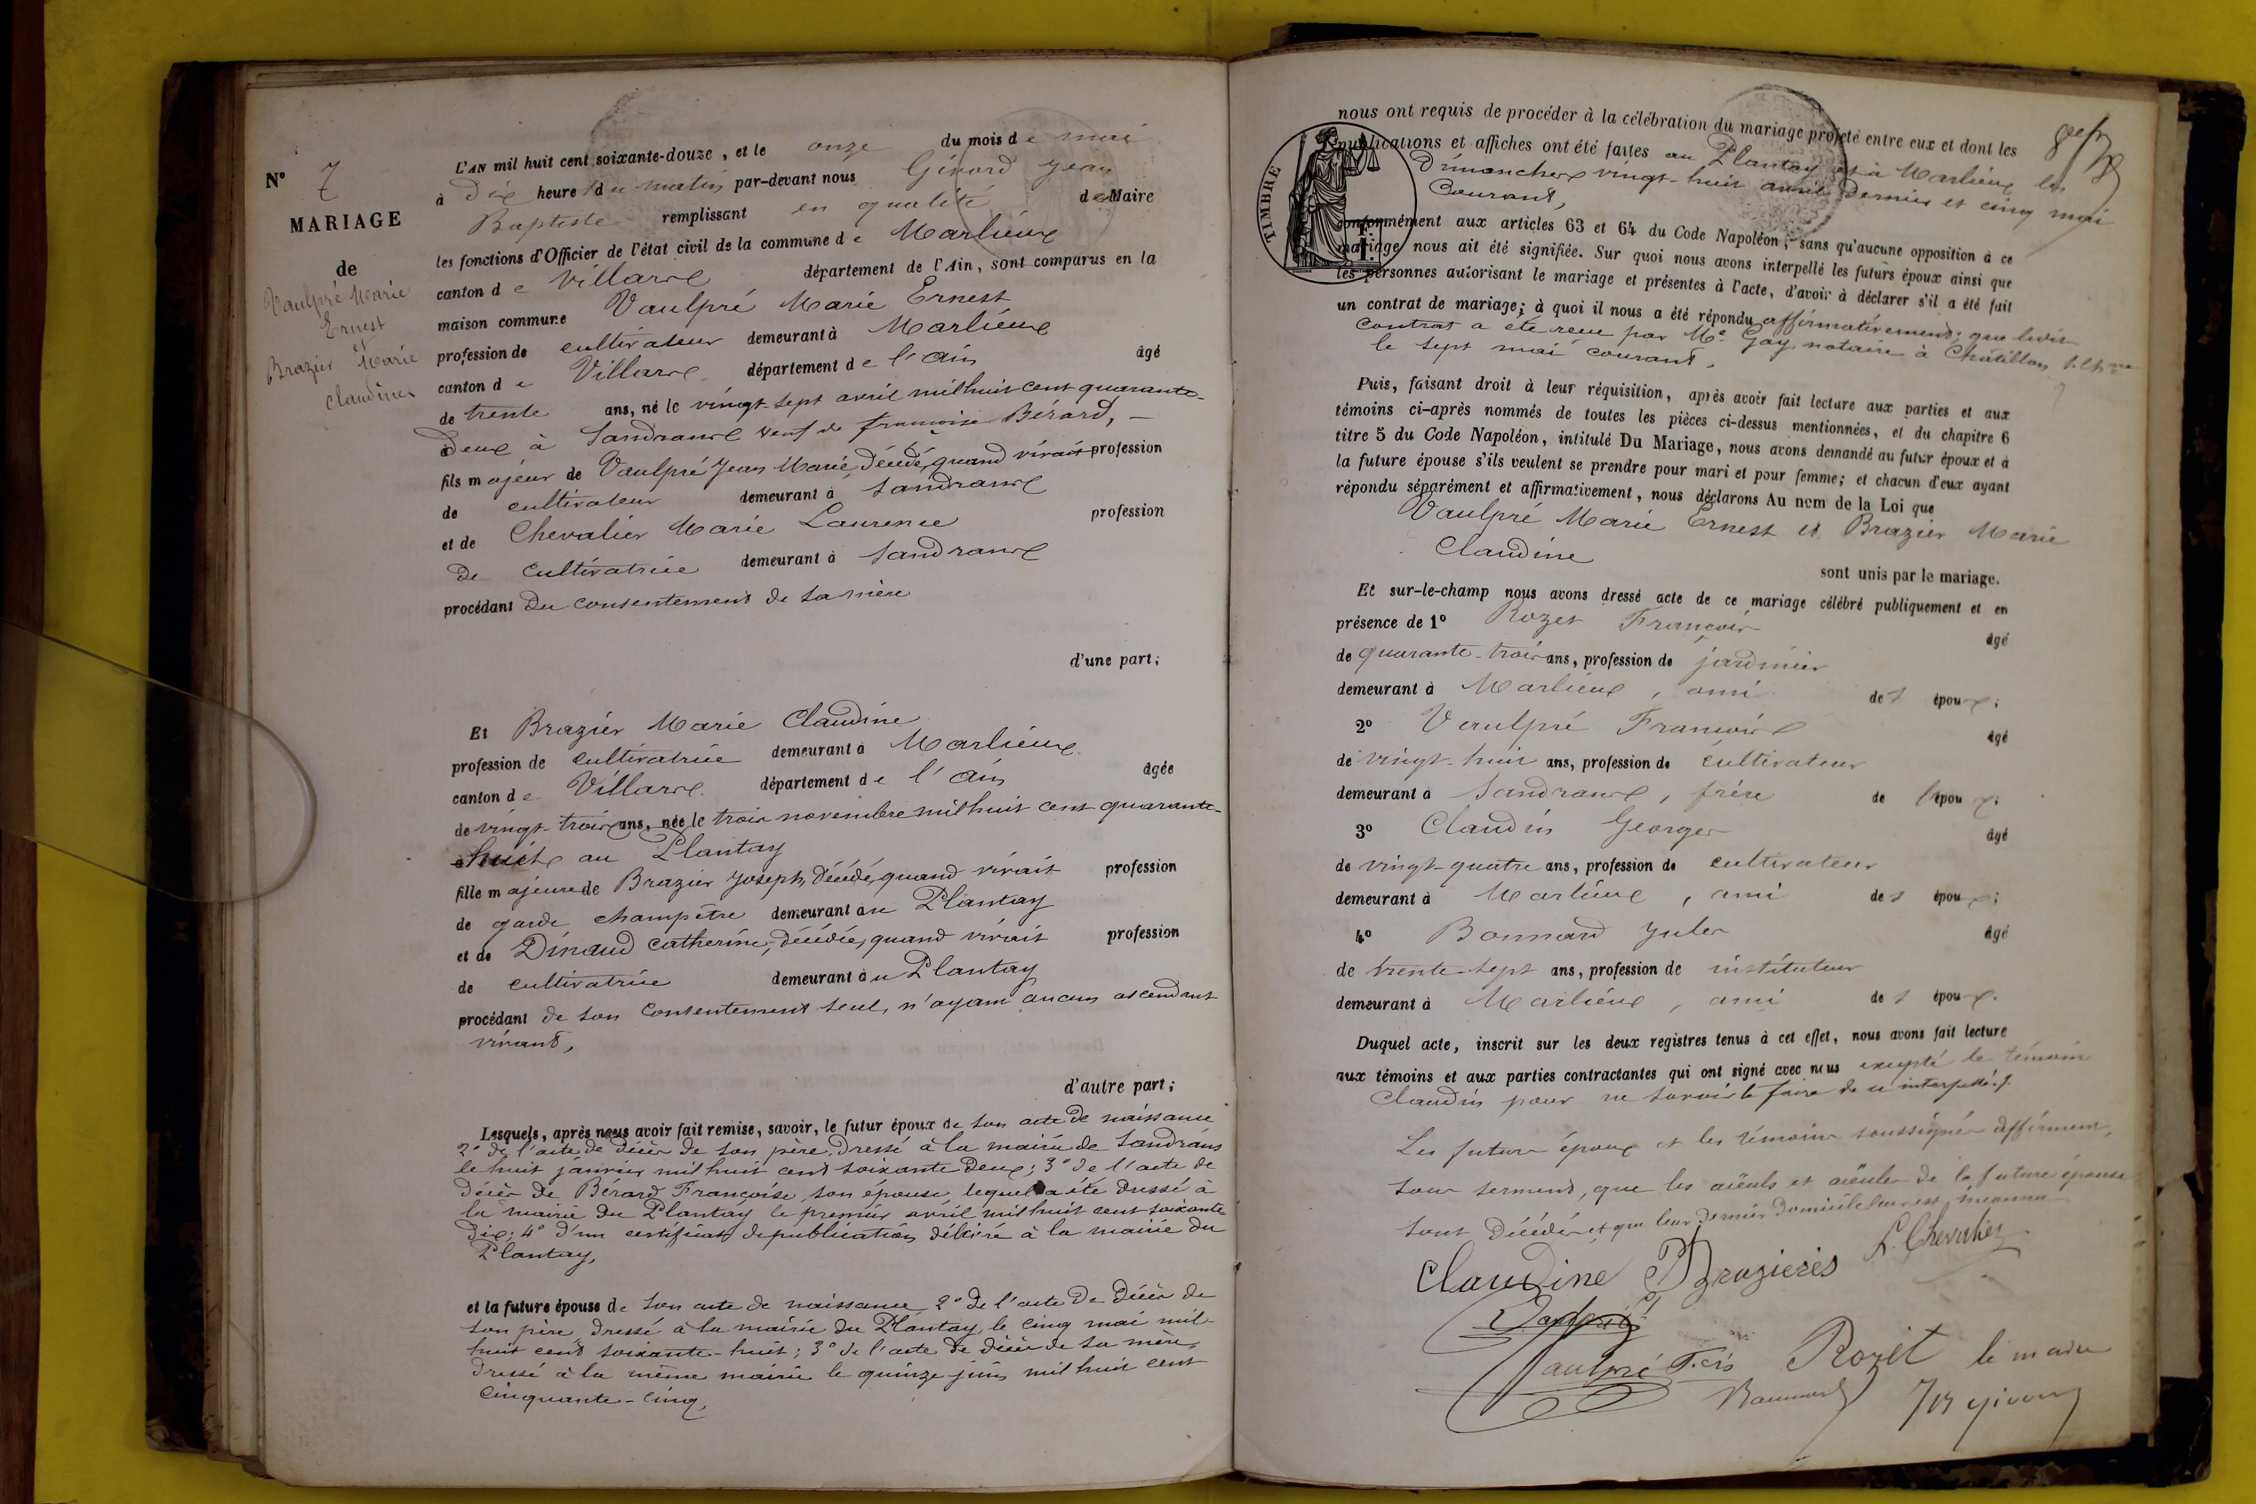 N° 7
MARIAGE
de
Vaulpré Marie
Ernest
et
Brazier Marie
Claudine
L'AN mil huit cent soixante-douze, et le onze du mois de mai
à Dix heure du matin par-devant nous Gérard Jean
Baptiste remplissant en qualité de Maire
les fonctions d'Officier de l'état civil de la commune de Marlieux
canton de Villars département de l'Ain, sont comparus en la
maison commune Vaulpré Marie Ernest
profession de cultivateur demeurant à Marlieux
canton de Villars département de l'Ain âgé
de trente ans, né le vingt-sept avril mil huit cent quarante-
deux à Sandrans veuf de françoise Bérard, —
fils majeur de Vaulpré Jean Marie, décédé, quand vivait profession
de cultivateur demeurant à Sandrans
et de Chevalier Marie Laurence profession
de cultivatrice demeurant à Sandrans
procédant du consentement de sa mère
d'une part;
Et Brazier Marie Claudine
profession de cultivatrice demeurant à Marlieux
canton de Villars département de l'Ain âgée
de vingt-trois ans, née le trois novembre mil huit cent quarante-
huit au Plantay
fille majeure de Brazier Joseph, décédé, quand vivait profession
de garde champêtre demeurant au Plantay
et de Dinaud Catherine, décédée, quand vivait profession
de cultivatrice demeurant au Plantay
procédant de son consentement seul, n'ayant aucun ascendant
vivant,
d'autre part;
Lesquels, après nous avoir fait remise, savoir, le futur époux de son acte de naissance
2° de l'acte de décès de son père, dressé à la mairie de Sandrans
le huit janvier mil huit cent soixante deux; 3° de l'acte de
décès de Bérard Françoise, son épouse, lequel a été dressé à
la mairie du Plantay le premier avril mil huit cent soixante
dix; 4° d'un certificat de publication délivré à la mairie du
Plantay,
et la future épouse de son acte de naissance 2° de l'acte de décès de
son père, dressé à la mairie du Plantay le cinq mai mil-
huit cent soixante-huit; 3° de l'acte de décès de sa mère,
dressé à la même mairie le quinze juin mil huit cent
cinquante-cinq,
TIMBRE
1 F.
nous ont requis de procéder à la célébration du mariage projeté entre eux et dont les
publications et affiches ont été faites au Plantay et à Marlieux les
Dimanches vingt-huit avril dernier et cinq mai
Courant,
conformément aux articles 63 et 64 du Code Napoléon; sans qu'aucune opposition à ce
mariage nous ait été signifiée. Sur quoi nous avons interpellé les futurs époux ainsi que
les personnes autorisant le mariage et présentes à l'acte, d'avoir à déclarer s'il a été fait
un contrat de mariage; à quoi il nous a été répondu affirmativement; que ledit
contrat a été reçu par Me Gay notaire à Châtillon
le sept mai courant,
Puis, faisant droit à leur réquisition, après avoir fait lecture aux parties et aux
témoins ci-après nommés de toutes les pièces ci-dessus mentionnées, et du chapitre 6
titre 5 du Code Napoléon, intitulé Du Mariage, nous avons demandé au futur époux et à
la future épouse s'ils veulent se prendre pour mari et pour femme; et chacun d'eux ayant
répondu séparément et affirmativement, nous déclarons Au nom de la Loi que
Vaulpré Marie Ernest et Brazier Marie
Claudine
sont unis par le mariage.
Et sur-le-champ nous avons dressé acte de ce mariage célébré publiquement et en
présence de 1° Rozet François âgé
de quarante-trois ans, profession de jardinier
demeurant à Marlieux, ami des époux;
2° Vaulpré François âgé
de vingt-huit ans, profession de cultivateur
demeurant à Sandrans, frère de l'époux;
3° Claudin Georges âgé
de vingt-quatre ans, profession de cultivateur
demeurant à Marlieux, ami des époux;
4° Bonnard Jules âgé
de trente-sept ans, profession de instituteur
demeurant à Marlieux, ami des époux.
Duquel acte, inscrit sur les deux registres tenus à cet effet, nous avons fait lecture
aux témoins et aux parties contractantes qui ont signé avec nous excepté le témoin
Claudin pour ne savoir le faire de ce interpellé.
Les futurs époux et les témoins soussignés affirment,
sous serment, que les aïeuls et aïeules de la future épouse
sont décédés et que leur dernier domicile leur est inconnu
Claudine Brazieres L. Chevalier
Vaulpré
Vaulpré F.cis Rozet le maire
Bonnard